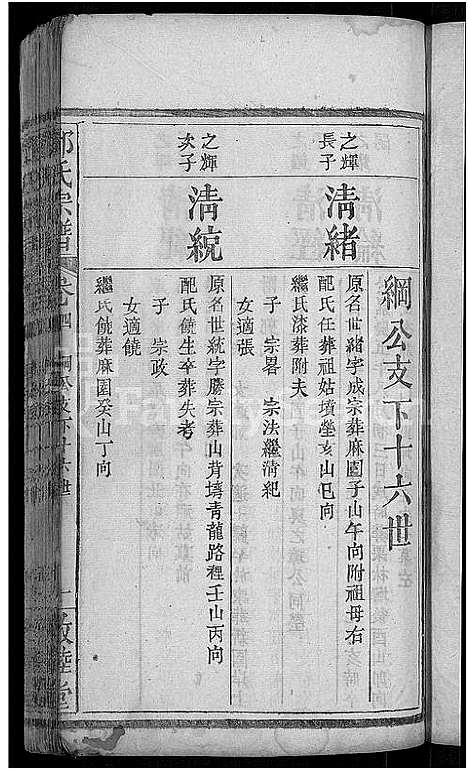 綱公支下十六世
之輝長子
清緒
原名世緒字成宗葬麻園子山午向附祖母右
配氏任葬祖姑墳塋亥山巳向
繼氏漆葬附夫
子 宗畧 宗法繼清紀
女適張
之輝次子
清統
原名世統字勝宗葬山背塆青龍路裡壬山丙向
配氏饒生卒葬失考
子 宗政
女適饒
繼氏饒葬麻園癸山丁向
氏宗譜 卷四 綱公支下十六世 敦睦堂